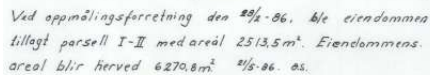 Ved oppmålingsforretning den 28/2-86, ble eiendommen
tillagt parsell I-II med areal 2513,5m². Eiendommens
areal blir herved 6270,8m² 21/5-86. ØS.